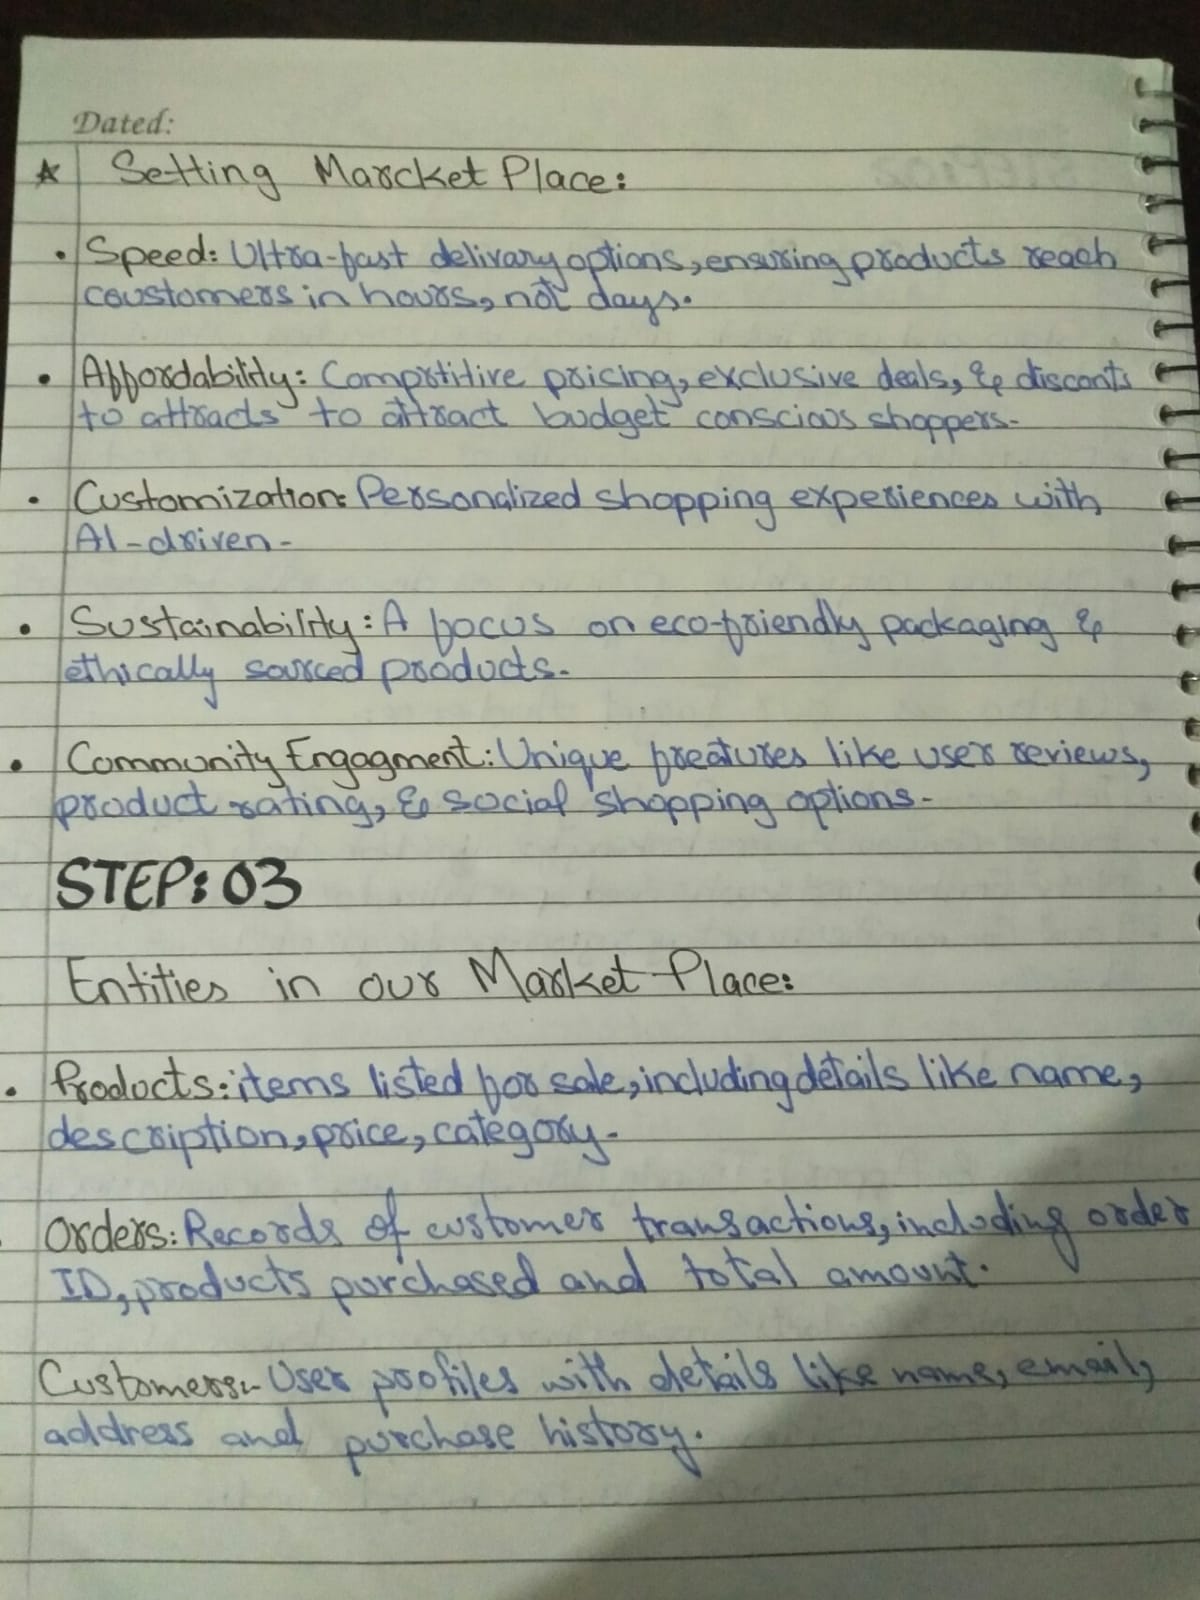 Dated:
☆ Setting Marcket Place:
• Speed: Ultra-fast delivary options, ensuring products reach
coustomers in hours, not days.
• Affordability: Comptitive pricing, exclusive deals, & disconts
to attracts to attract budget conscious shoppers.
• Customization: Personalized shopping experiences with
AI-driven-
• Sustainability: A focus on eco-friendly packaging &
ethically sourced products.
• Community Engagment: Unique freatures like user reviews,
product rating, & social shopping options-
STEP: 03
Entities in our Market Place:
• Products: items listed for sale, including details like name,
description, price, category-
Orders: Records of customer transactions, including order
ID, products purchased and total amount.
Customers:- User profiles with details like name, email,
address and purchase history.